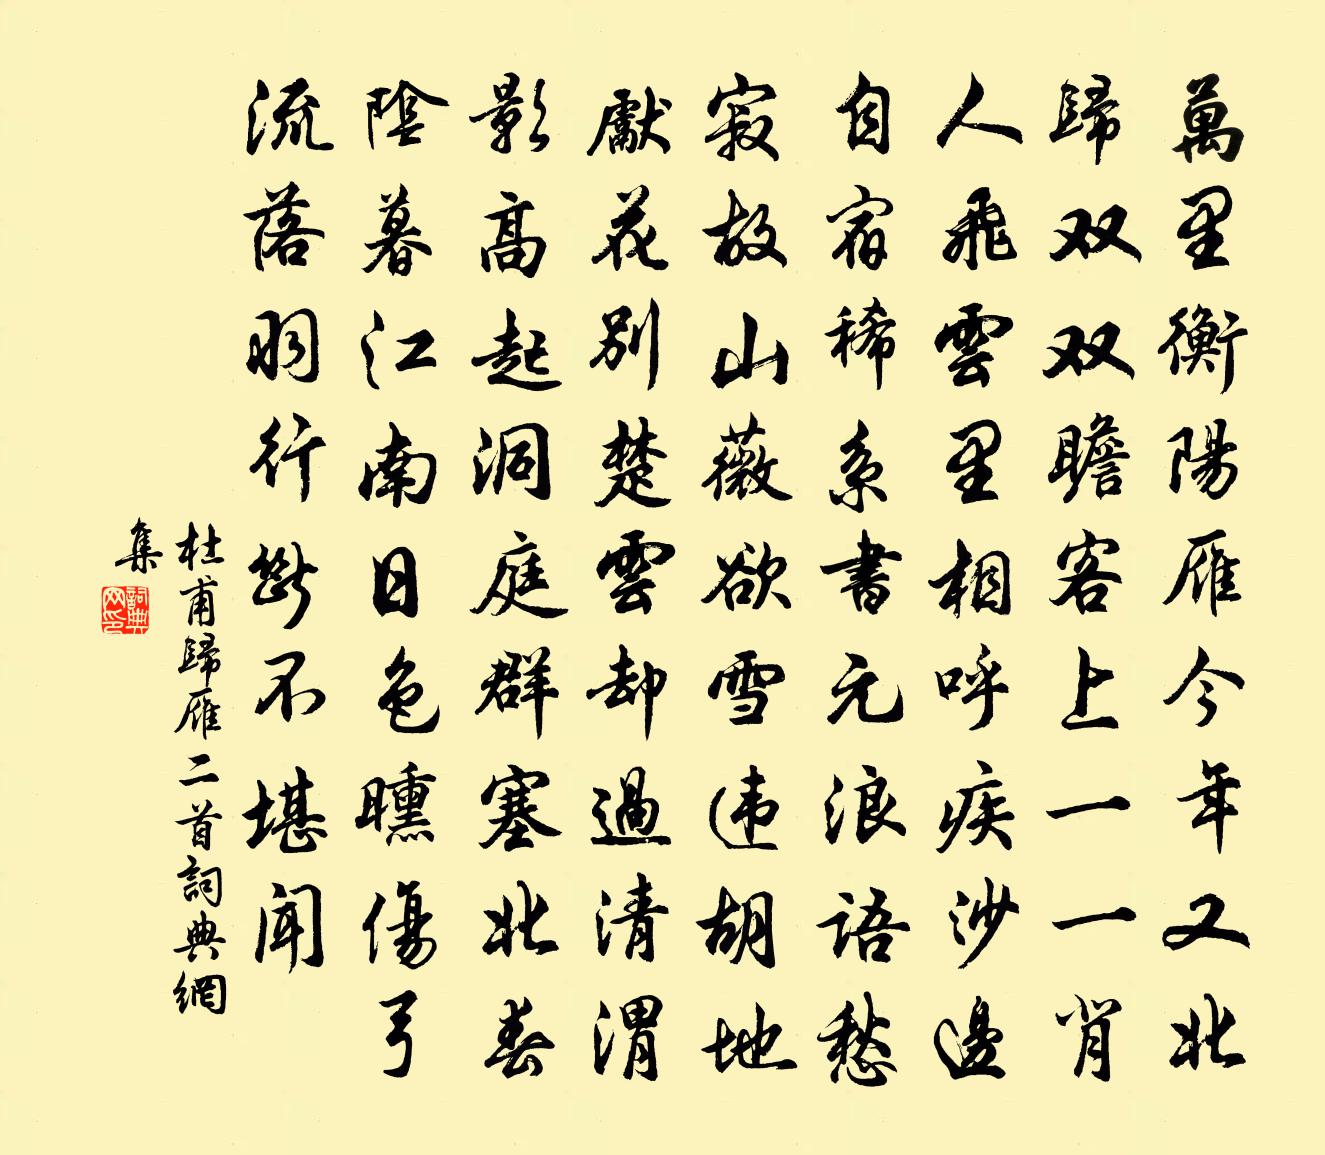 萬里衡陽雁今年又北
歸双双瞻客上一一背
人飛雲里相呼疾沙邊
自宿稀系書元浪語愁
寂故山薇欲雪违胡地
獻花别楚雲却過清渭
影高起洞庭群塞北春
陰暮江南日色曛傷弓
流落羽行斷不堪聞
杜甫歸雁二首詞典網
集
詞典
网印